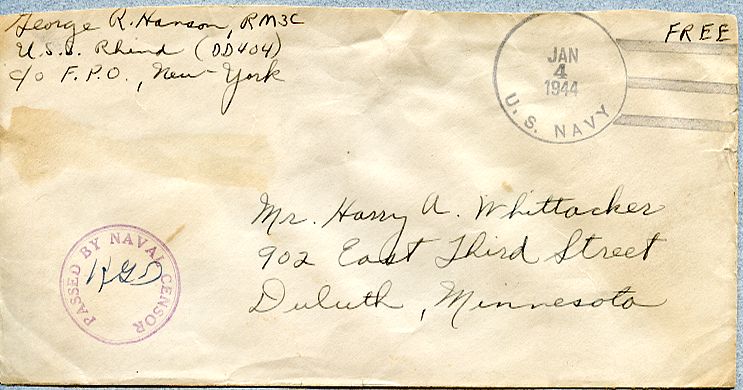 George R. Hanson, RM3C
U.S.S. Rhind (DD404)
c/o F.P.O., New York
FREE
JAN
4
1944
U. S. NAVY
Mr. Harry A. Whittacker
902 East Third Street
Duluth, Minnesota
PASSED BY NAVAL CENSOR